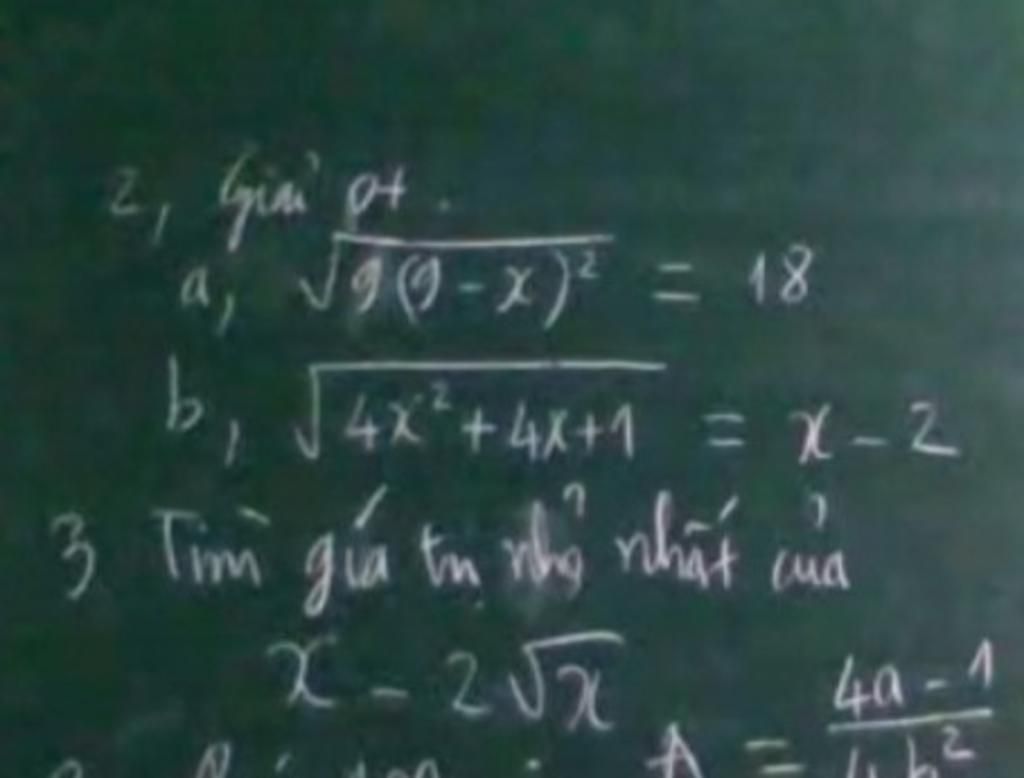 2, Giải pt.
a, √9(9-x)² = 18
b, √4x²+4x+1 = x-2
3 Tìm gía trị nhỏ nhất của
x - 2√x
A = 4a-1